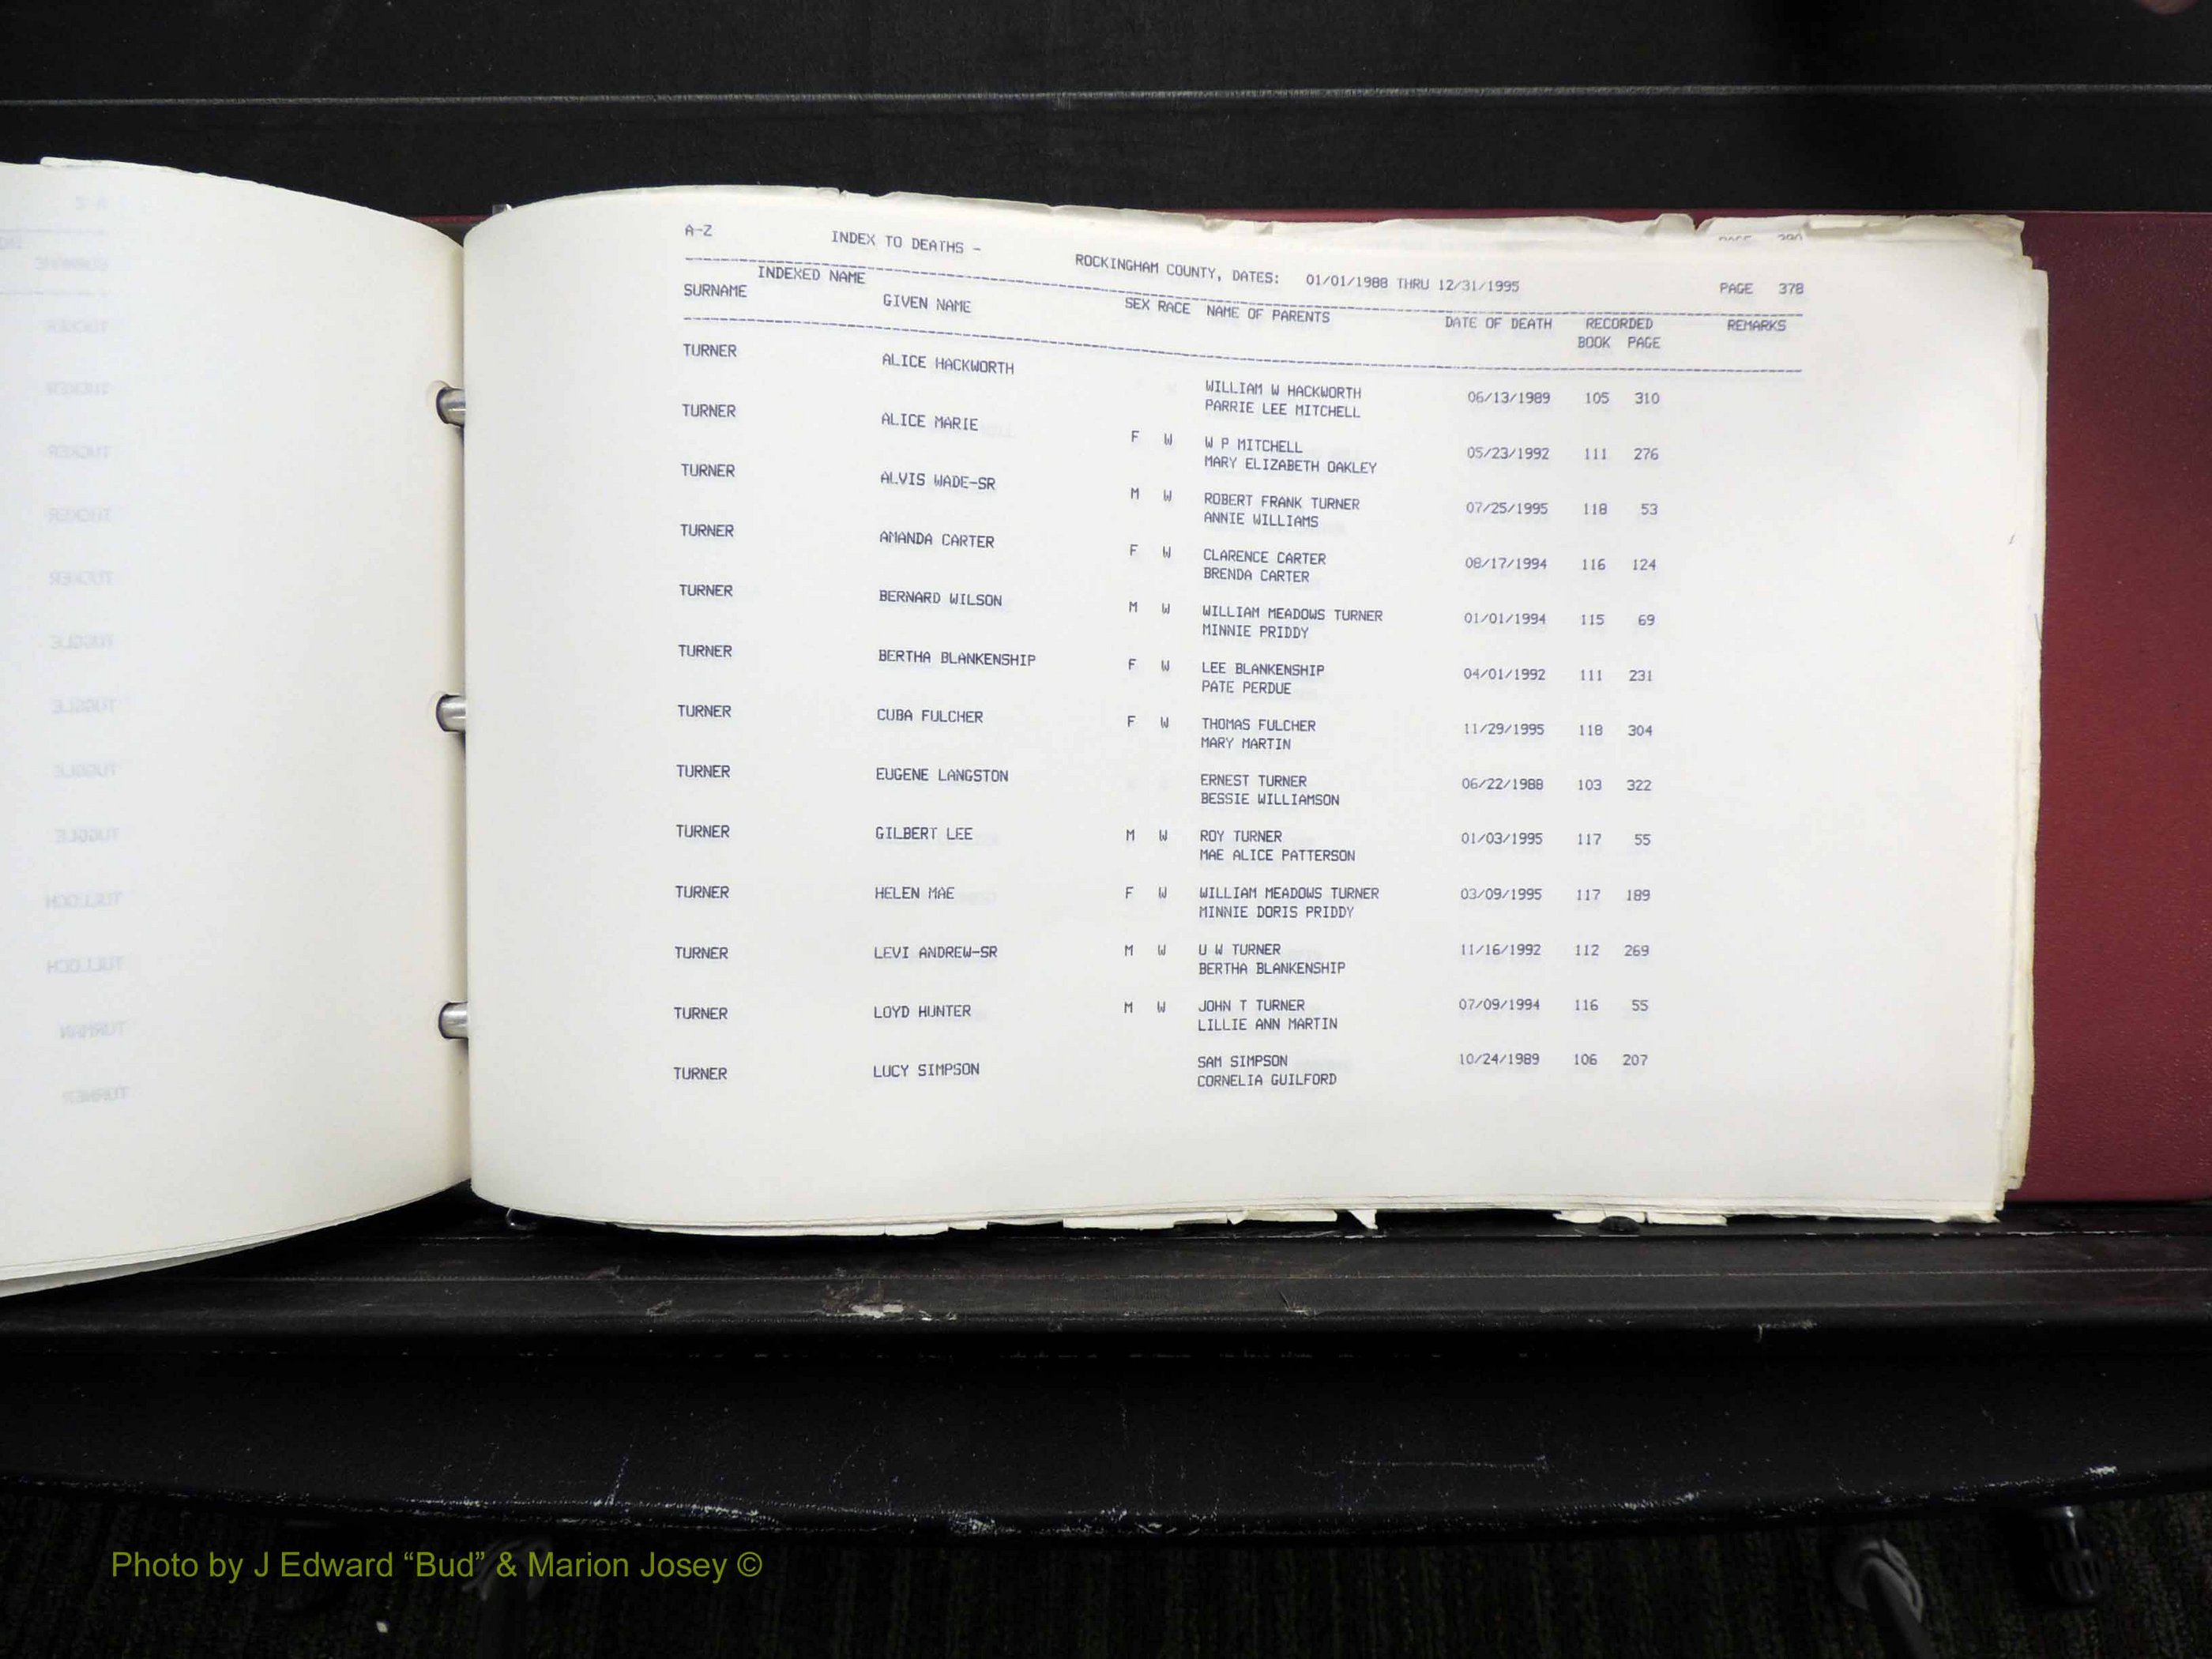 A-Z INDEX TO DEATHS - ROCKINGHAM COUNTY, DATES: 01/01/1988 THRU 12/31/1995 PAGE 378
INDEXED NAME
SURNAME GIVEN NAME SEX RACE NAME OF PARENTS DATE OF DEATH RECORDED REMARKS
BOOK PAGE
TURNER ALICE HACKWORTH WILLIAM W HACKWORTH 06/13/1989 105 310
PARRIE LEE MITCHELL
TURNER ALICE MARIE F W W P MITCHELL 05/23/1992 111 276
MARY ELIZABETH OAKLEY
TURNER ALVIS WADE-SR M W ROBERT FRANK TURNER 07/25/1995 118 53
ANNIE WILLIAMS
TURNER AMANDA CARTER F W CLARENCE CARTER 08/17/1994 116 124
BRENDA CARTER
TURNER BERNARD WILSON M W WILLIAM MEADOWS TURNER 01/01/1994 115 69
MINNIE PRIDDY
TURNER BERTHA BLANKENSHIP F W LEE BLANKENSHIP 04/01/1992 111 231
PATE PERDUE
TURNER CUBA FULCHER F W THOMAS FULCHER 11/29/1995 118 304
MARY MARTIN
TURNER EUGENE LANGSTON ERNEST TURNER 06/22/1988 103 322
BESSIE WILLIAMSON
TURNER GILBERT LEE M W ROY TURNER 01/03/1995 117 55
MAE ALICE PATTERSON
TURNER HELEN MAE F W WILLIAM MEADOWS TURNER 03/09/1995 117 189
MINNIE DORIS PRIDDY
TURNER LEVI ANDREW-SR M W U W TURNER 11/16/1992 112 269
BERTHA BLANKENSHIP
TURNER LOYD HUNTER M W JOHN T TURNER 07/09/1994 116 55
LILLIE ANN MARTIN
TURNER LUCY SIMPSON SAM SIMPSON 10/24/1989 106 207
CORNELIA GUILFORD
Photo by J Edward “Bud” & Marion Josey ©